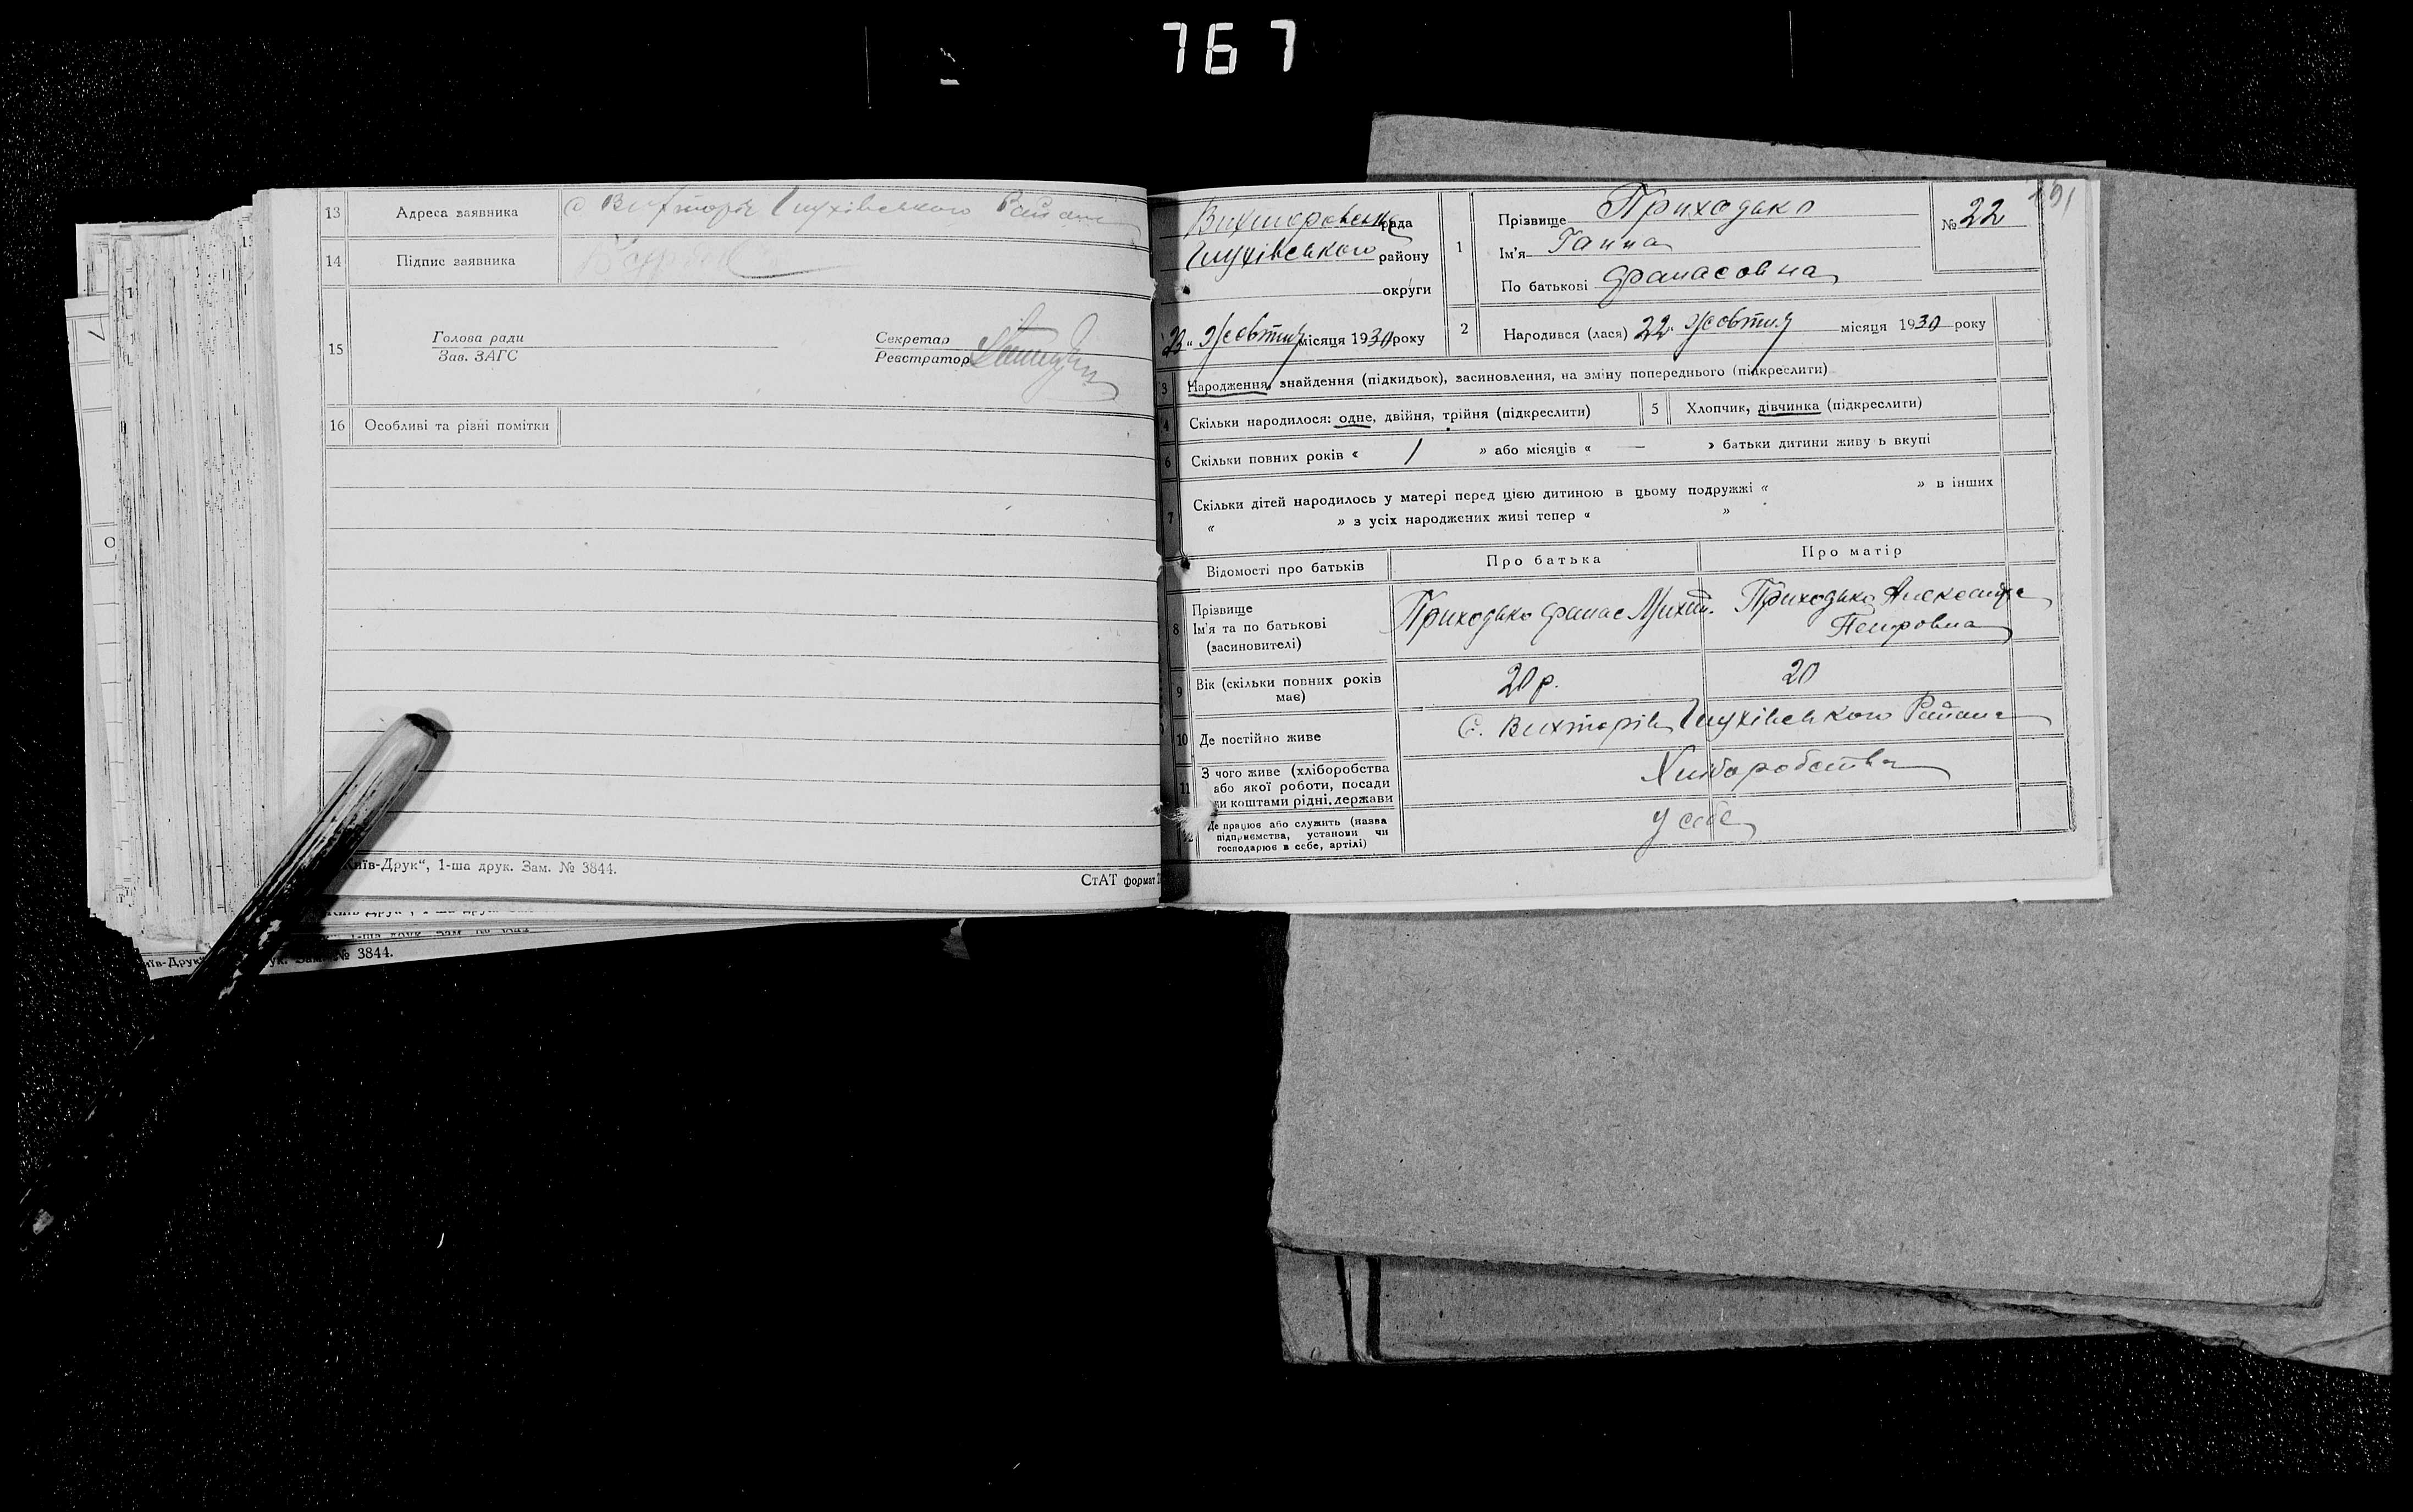 767
13 Адреса заявника с Вихторів Глухівського Району
14 Підпис заявника
15 Голова ради
Зав. ЗАГС
Секретар
Реєстратор
16 Особливі та різні помітки
Київ-Друк“, 1-ша друк. Зам. № 3844.
СтАТ формат
№ 3844.
191
Вихторовська рада
Глухівського району
округи
23 " Жовтня місяця 1930 року
1 Прізвище Приходько
Ім'я Ганна
По батькові Фанасовна
№ 22
2 Народився (лася) 22 " Жовтня місяця 1930 року
3 Народження, знайдення (підкидьок), засиновлення, на зміну попереднього (підкреслити)
4 Скільки народилося: одне, двійня, трійня (підкреслити)
5 Хлопчик, дівчинка (підкреслити)
6 Скільки повних років « 1 » або місяців « — » батьки дитини живу ь вкупі
7 Скільки дітей народилось у матері перед цією дитиною в цьому подружжі « » в інших
« » з усіх народжених живі тепер « »
Відомості про батьків Про батька Про матір
8 Прізвище
Ім'я та по батькові
(засиновителі)
Приходько Фанас Михай.
Приходько Александра
Петровна
9 Вік (скільки повних років
має)
20 р. 20
10 Де постійно живе С. Вихторів Глухівського Району
11 З чого живе (хліборобства
або якої роботи, посади
чи коштами рідні, держави
Хліборобства
12 Де працює або служить (назва
підприємства, установи чи
господарює в себе, артілі)
у себе